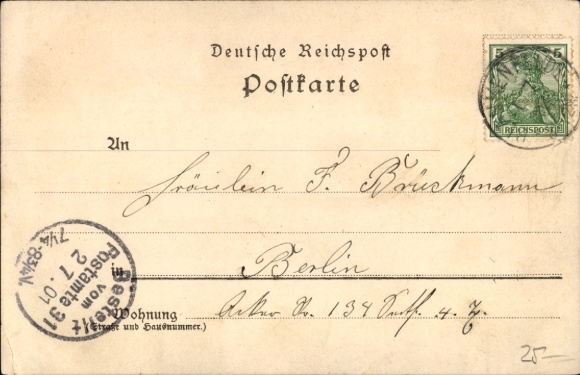 Deutsche Reichspost
Postkarte
5 5
REICHSPOST
An
Fräulein F. Brückmann
in Berlin
Wohnung
(Straße und Hausnummer.)
134
Bestellt
vom
Postamte 31
2 7. 01
7¼-8¾N.
25—